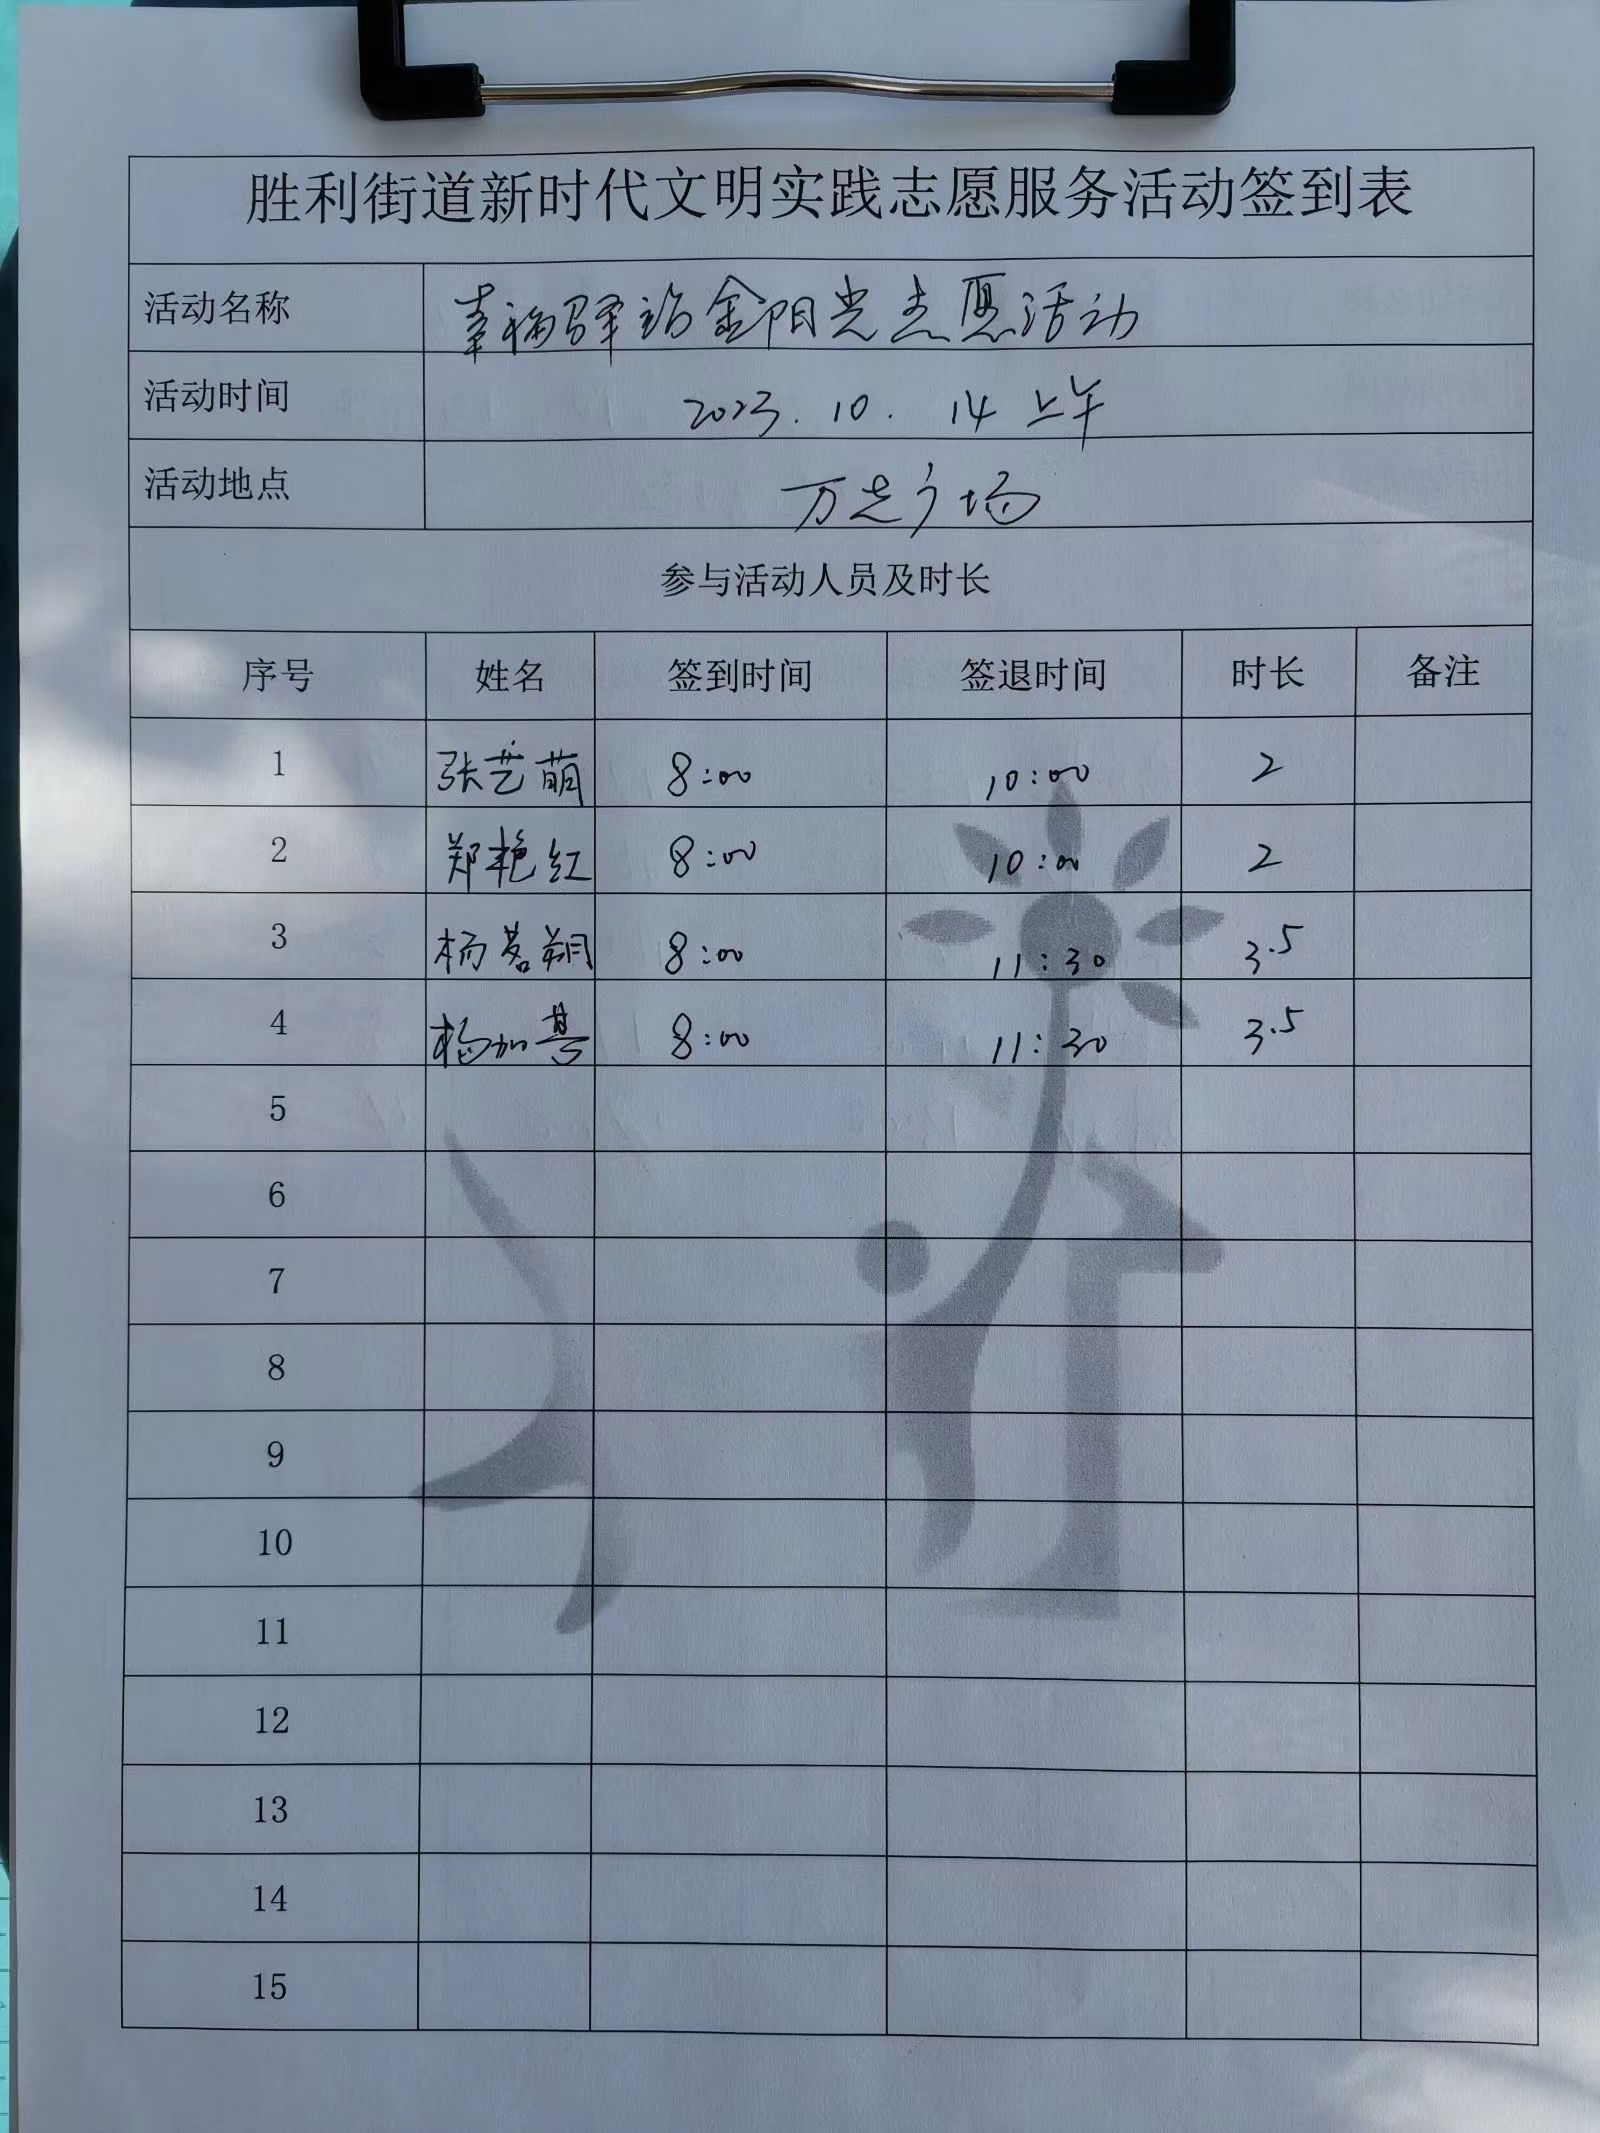 胜利街道新时代文明实践志愿服务活动签到表
活动名称 幸福驿站金阳光志愿活动
活动时间 2023.10.14上午
活动地点 万达广场
参与活动人员及时长
序号 姓名 签到时间 签退时间 时长 备注
1 张艺萌 8:00 10:00 2
2 郑艳红 8:00 10:00 2
3 杨茗朔 8:00 11:30 3.5
4 杨加 8:00 11:30 3.5
5
6
7
8
9
10
11
12
13
14
15